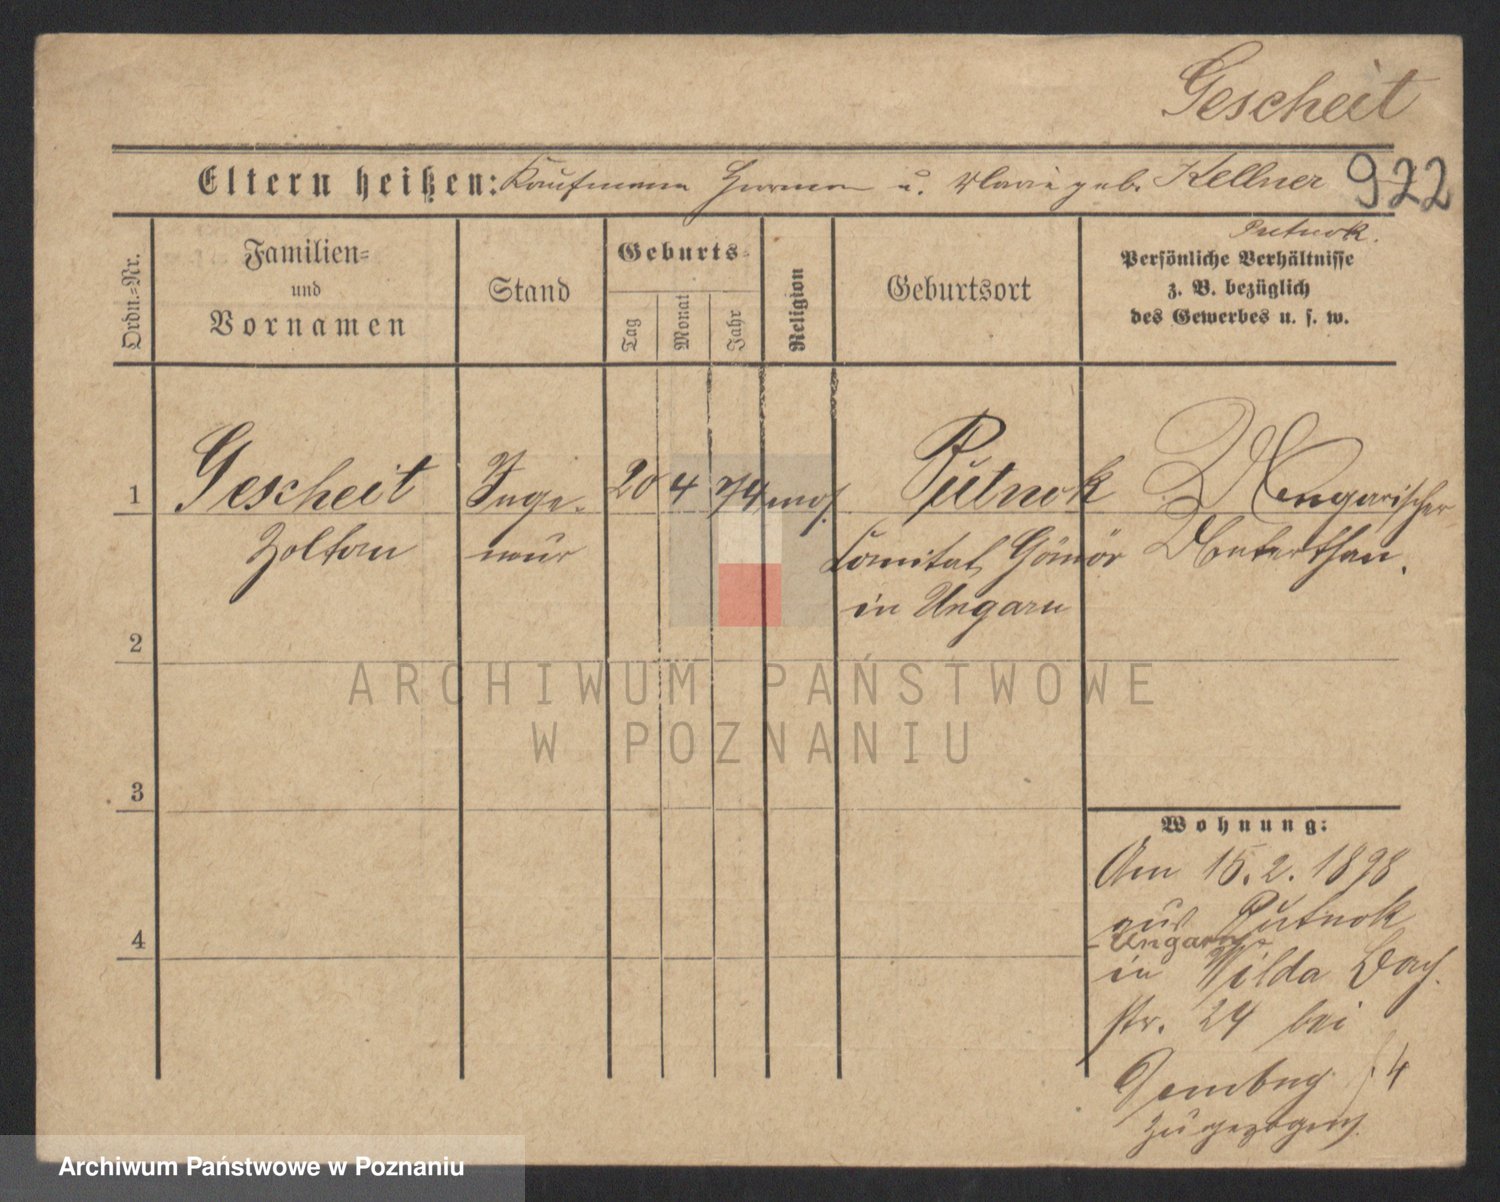 Gescheit
Eltern heißen: Kaufmann Herman u. Marie geb. Kellner 922
Putnok.
Ordn.-Nr.
Familien-
und
Vornamen
Stand
Geburts-
Tag
Monat
Jahr
Religion
Geburtsort
Persönliche Verhältnisse
z. B. bezüglich
des Gewerbes u. s. w.
1 Gescheit Inge- 20 4 74 mos. Putnok Ungarischer
Zoltan nieur Comitat Gömör Unterthan.
in Ungarn
2
3
4
Wohnung:
Am 15. 2. 1898
aus Putnok
Ungarn
in Wilda
str. 24 bei
4
zugezogen
ARCHIWUM PAŃSTWOWE
W POZNANIU
Archiwum Państwowe w Poznaniu